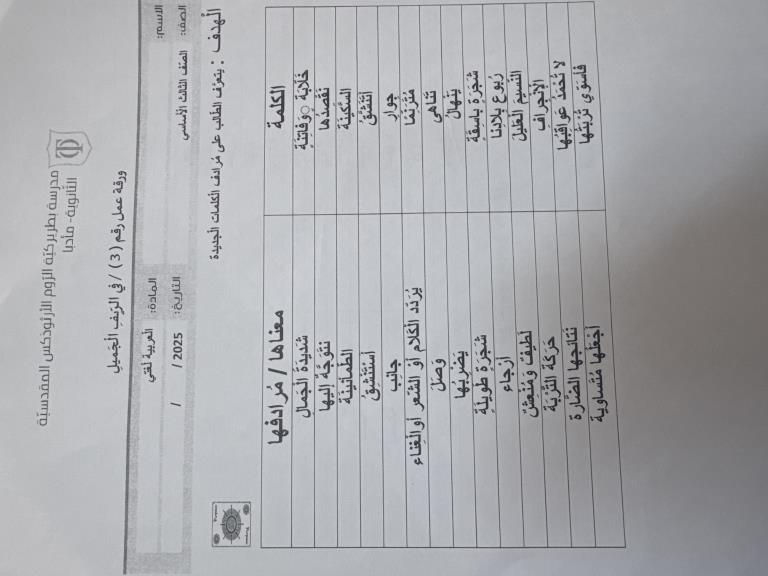 مدرسة بطريركيّة الرّوم الأرثوذكس المقدسيّة
الثّانوية- مأدبا
ورقة عمل رقم (3) / في الرّيفِ الجَميلِ
الاسم:
المادة: العربية لغتي
الصف: الصّف الثالث الأساسي
التاريخ: / / 2025
الهدف : يتعرّف الطالب على مُرادف الكلمات الجديدة
الكلمة معناها / مُرادفها
خَلّابَة وَفاتِنَةٍ شَديدَةُ الْجَمالِ
نَقْصِدُها نَتَوَجَّهُ إليها
السَّكينَة الطمأنينَة
أَتَنَشَّقُ أَسْتَنْشِقُ
جِوارِ جانِب
مُتَرَنِّمًا يُرَدِّد الْكَلام أو الشّعر أو الْغِناء
تَناهى وَصَلَ
يَنْهالُ يضربها
شَجَرَةٍ باسِقَةٍ شَجَرَةٍ طَويلَةٍ
رُبوع بِلادنا أرْجاء
النَّسيمَ الْعَليلَ لَطيفٌ وَمُنْعِشٌ
الانْجِرافِ حَرَكَة التُّرْبَة
لا تُحْمَدُ عَواقِبُها نَتائجها الضّارة
فَاسَتَوي تُرْبَتُها اجْعَلْها مُتَساوية